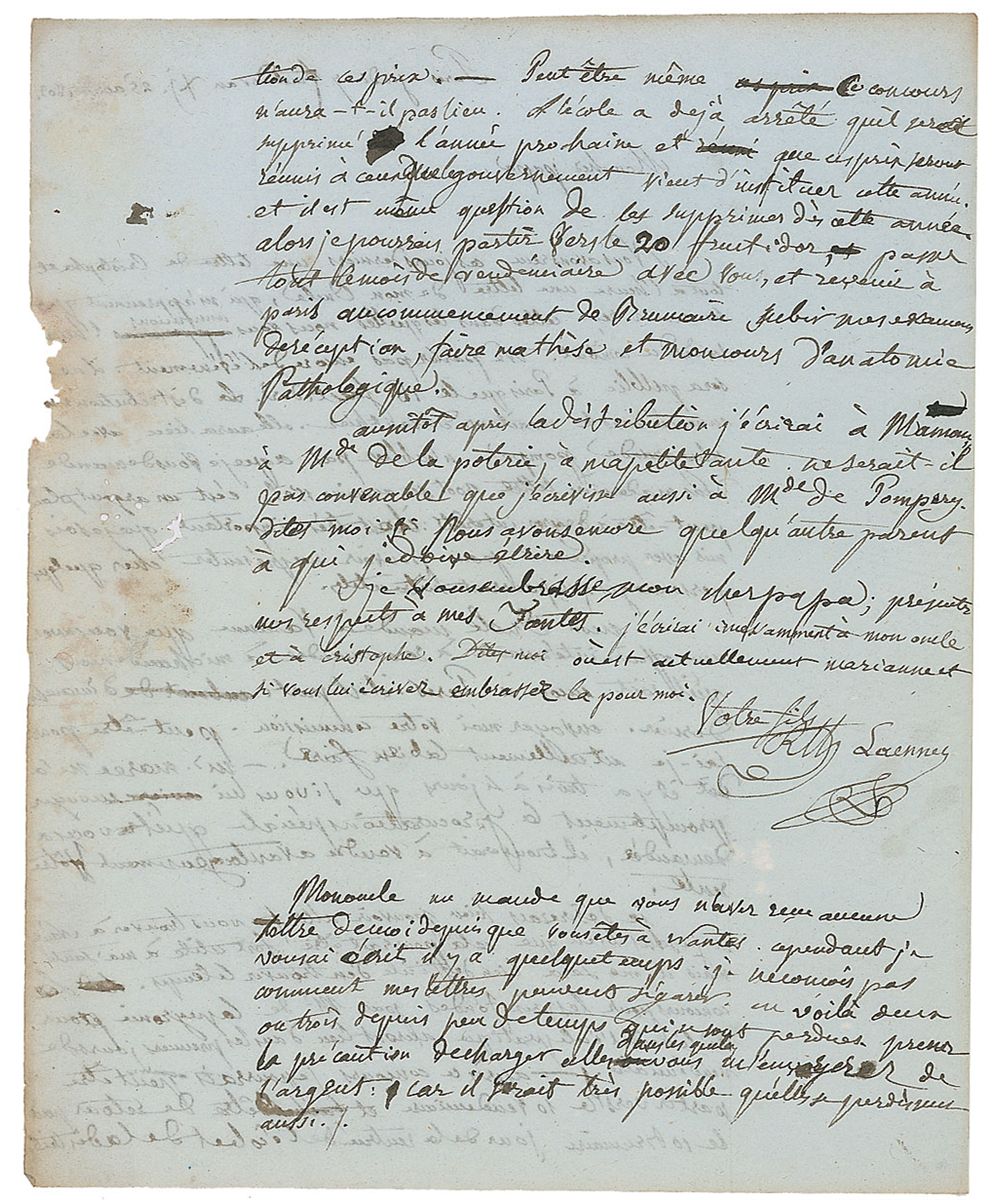 tion de ces prix. — Peut être même ce concours
n'aura-t-il pas lieu. l'école a dejà arrêté qu'il serait
supprimé l'année prochaine et que ces prix seront
réunis à ceux que le gouvernement vient d'instituer cette année.
et il est même question de les supprimer dès cette année.
alors je pourrais partir vers le 20 fructidor, passer
tout le mois de vendemiaire avec vous, et revenir à
paris au commencement de Brumaire subir mes examens
de réception, faire ma thèse et mon cours d'anatomie
Pathologique.
aussitôt après la distribution j'écrirai à Maman,
à Mde de la poterie, à ma petite tante. ne serait-il
pas convenable que j'écrivisse aussi à Mde de Pompery.
dites moi si nous avons encore quelqu'autre parent
à qui je doive écrire.
je vous embrasse mon cher papa; présentez
mes respects à mes Tantes. j'écrirai incessamment à mon oncle
et à cristophe. Dites moi où est actuellement marianne et
si vous lui écrivez embrassez la pour moi.
Votre fils
RTH Laennec
Mon oncle me mande que vous n'avez reçu aucune
lettre de moi depuis que vous êtes à nantes. cependant je
vous ai écrit il y a quelque temps. je ne conçois pas
comment mes lettres peuvent s'égarer. en voilà deux
ou trois depuis peu de temps qui se sont perdues prenez
la précaution de charger celles dans lesquelles vous m'enverrez de
l'argent: car il serait très possible qu'elles se perdissent
aussi./.